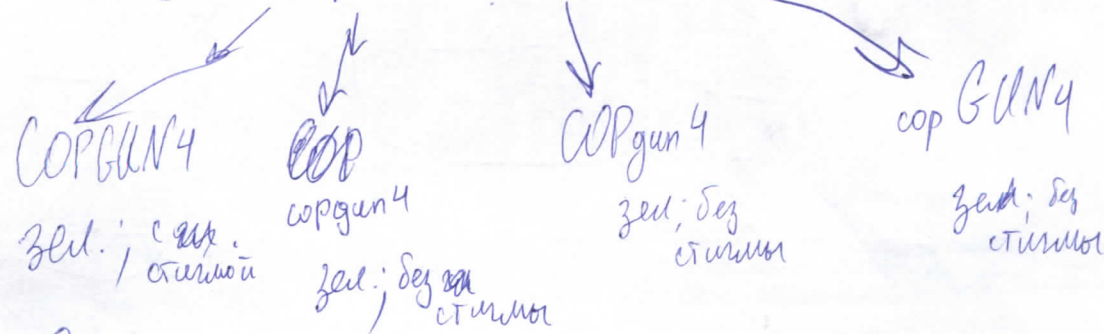 COPGUN4
зел.; с
стигмой
COP
copgun4
зел.; без
стигмы
COPgun4
зел; без
стигмы
cop GUN4
зел; без
стигмы